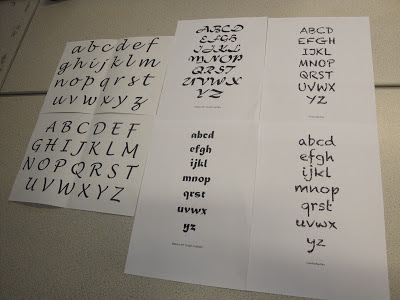 a b c d e f
g h i j k l m
n o p q r s t
u v w x y z
A B C D E F
G H I J K L M
N O P Q R S T
U V W X Y Z
ABCD
EFGH
IJKL
MNOP
QRST
UVWX
YZ
abcd
efgh
ijkl
mnop
qrst
uvwx
yz
ABCD
EFGH
IJKL
MNOP
QRST
UVWX
YZ
abcd
efgh
ijkl
mnop
qrst
uvwx
yz